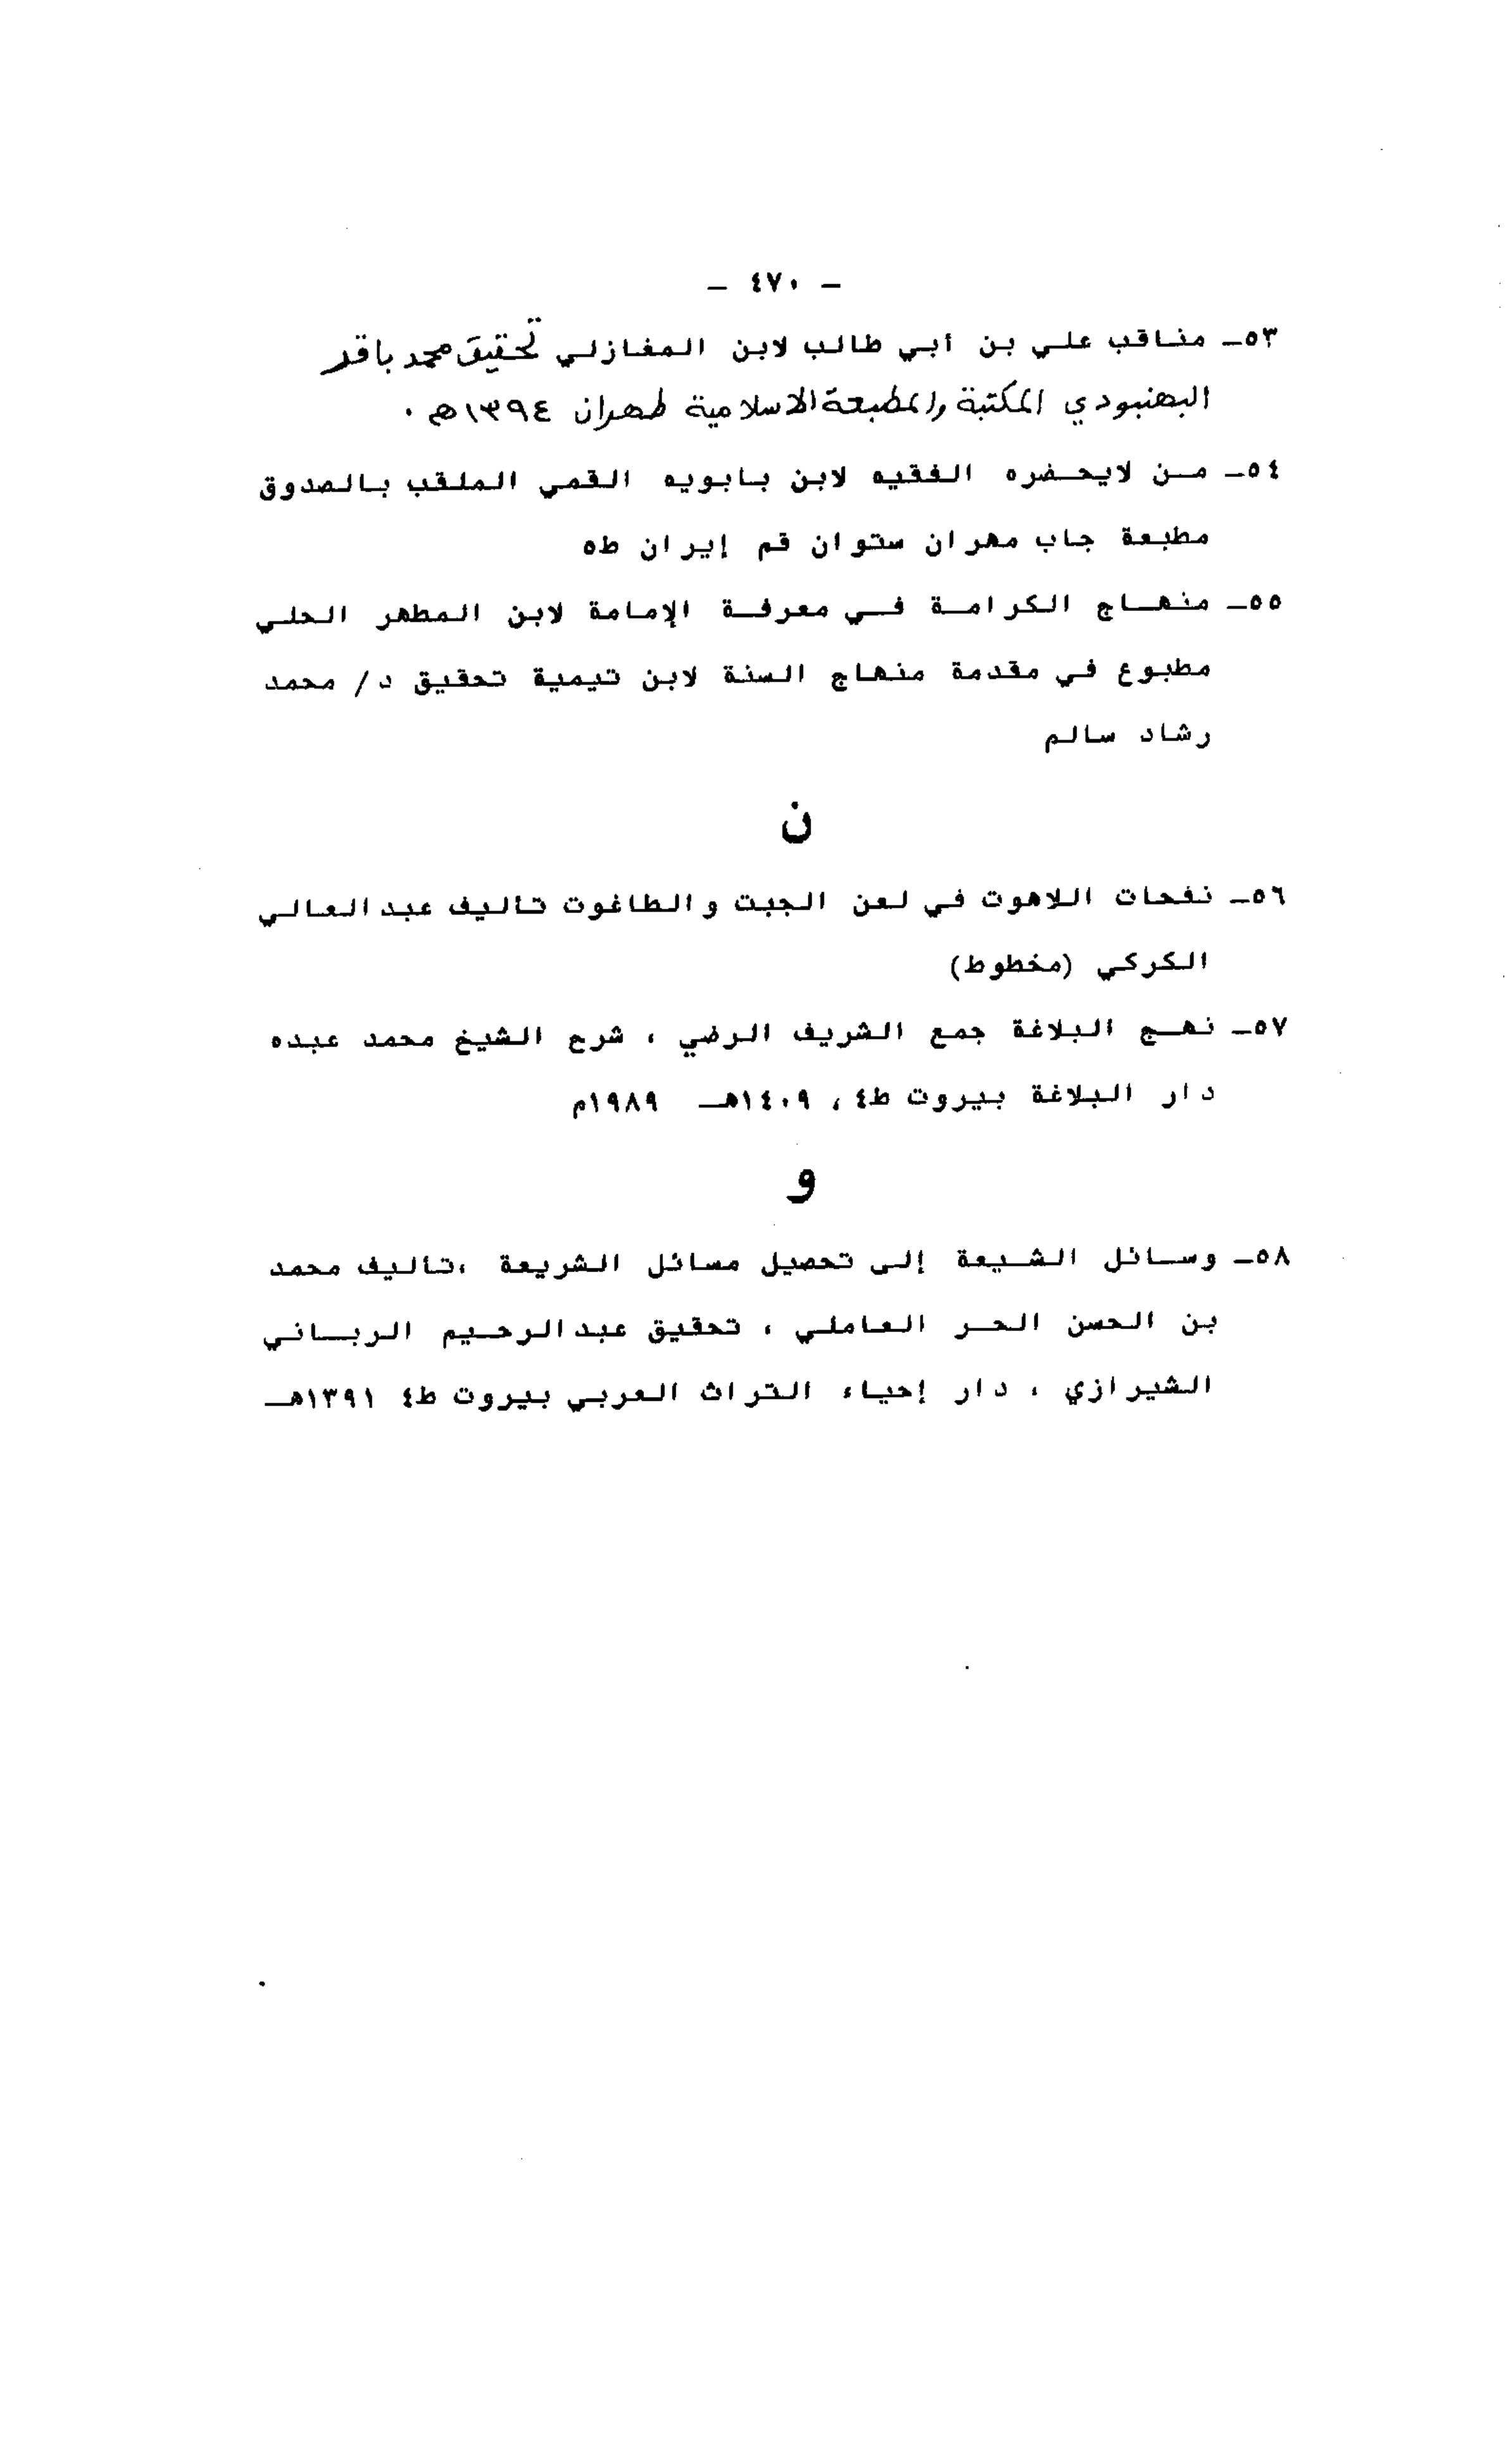 - ٤٧٠ -
٥٣- مناقب علي بن أبي طالب لابن المغازلي تحقيق محمد باقر
البهنبودي المكتبة والمطبعة الاسلامية طهران ١٣٩٤هـ .
٥٤- من لايحضره الفقيه لابن بابويه القمي الملقب بالصدوق
مطبعة جاب مهران ستوان قم إيران ط٥
٥٥- منهاج الكرامة في معرفة الإمامة لابن المطهر الحلي
مطبوع في مقدمة منهاج السنة لابن تيمية تحقيق د/ محمد
رشاد سالم
ن
٥٦- نفحات اللاهوت في لعن الجبت والطاغوت تأليف عبدالعالي
الكركي (مخطوط)
٥٧- نهج البلاغة جمع الشريف الرضي ، شرح الشيخ محمد عبده
دار البلاغة بيروت ط٤ ، ١٤٠٩هـ ١٩٨٩م
و
٥٨- وسائل الشيعة إلى تحصيل مسائل الشريعة ،تأليف محمد
بن الحسن الحر العاملي ، تحقيق عبدالرحيم الرباني
الشيرازي ، دار إحياء التراث العربي بيروت ط٤ ١٣٩١هـ